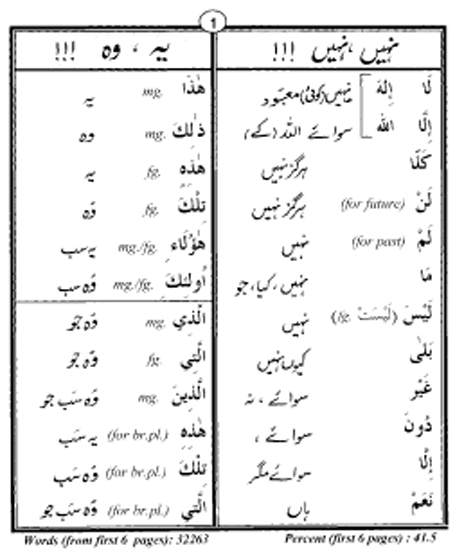 1
نہیں ، نہیں !!!
لَا إِلٰهَ نہیں (کوئی) معبود
إِلَّا الله سوائے اللہ (کے)
كَلَّا ہرگز نہیں
لَنْ (for future) ہرگز نہیں
لَمْ (for past) نہیں
مَا نہیں، کیا، جو
لَيْسَ (لَيْسَتْ fg.) نہیں
بَلٰى کیوں نہیں
غَيْر سوائے ، نہ
دُونَ سوائے ،
إِلَّا سوائے مگر
نَعَمْ ہاں
Percent (first 6 pages) : 41.5
یہ ، وہ !!!
هٰذَا mg. یہ
ذٰلِكَ mg. وہ
هٰذِهِ fg. یہ
تِلْكَ fg. وُہ
هٰؤُلَاءِ mg./fg. یہ سب
أُولٰئِكَ mg./fg. وُہ سب
الَّذِي mg. وُہ جو
الَّتِي fg. وُہ جو
الَّذِينَ mg. وُہ سَب جو
هٰذِهِ (for br.pl.) یہ سَب
تِلْكَ (for br.pl.) وُہ سَب
الَّتِي (for br.pl.) وُہ سَب جو
Words (from first 6 pages): 32263